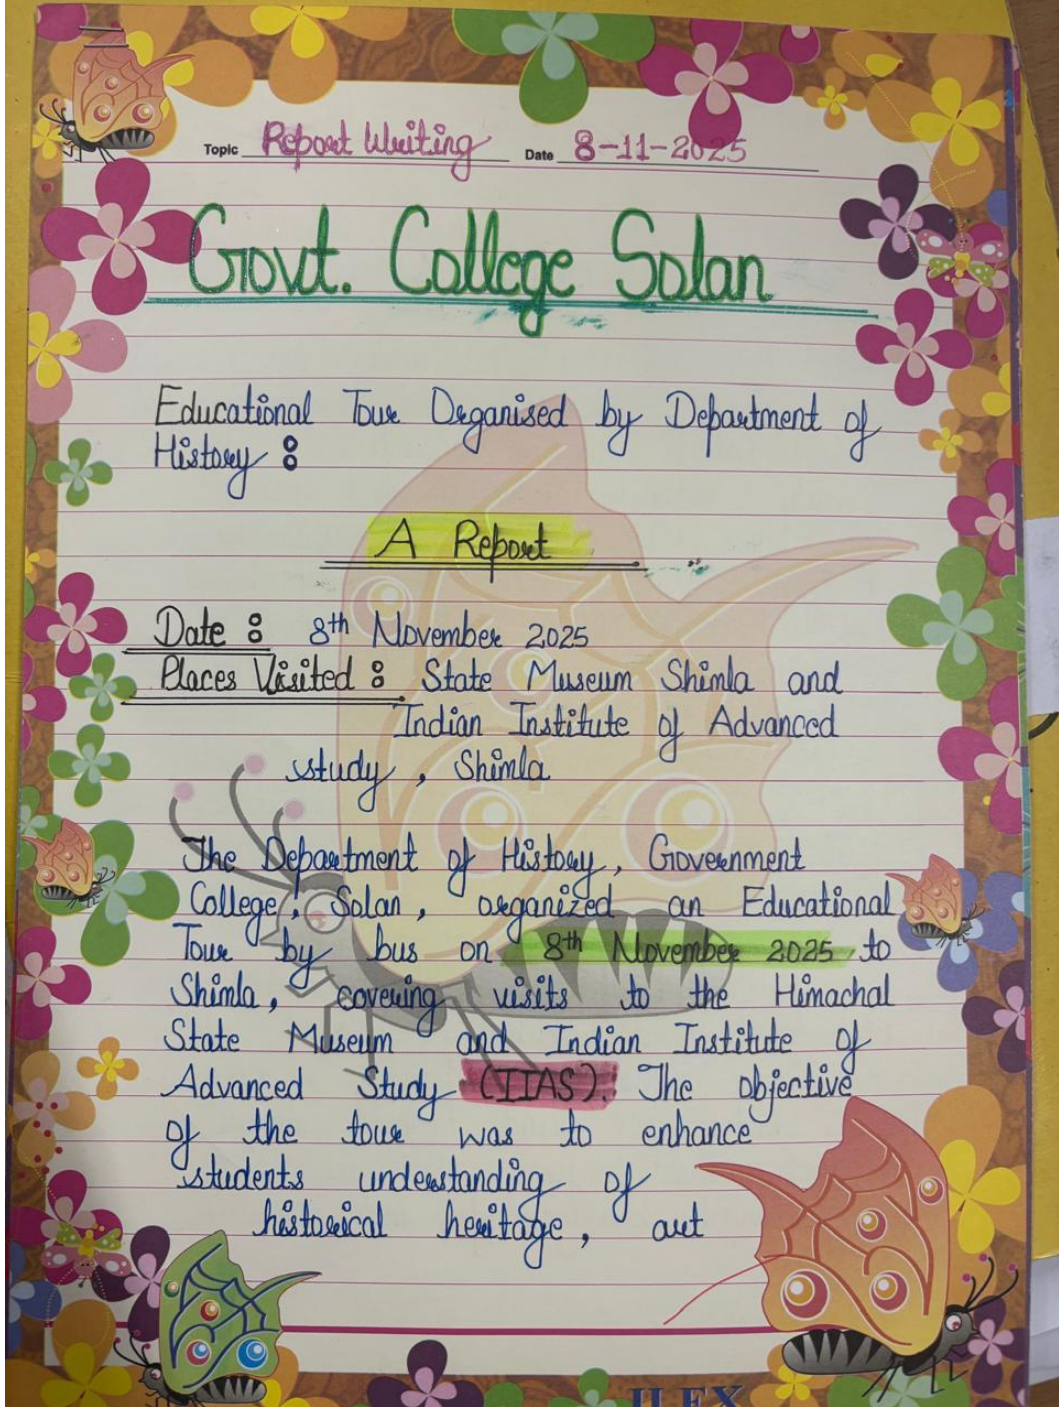 Topic Report Writing Date 8-11-2025
Govt. College Solan
Educational Tour Organised by Department of
History :
A Report
Date : 8th November 2025
Places Visited : State Museum Shimla and
Indian Institute of Advanced
study, Shimla
The Department of History, Government
College, Solan, organized an Educational
Tour by bus on 8th November 2025 to
Shimla, covering visits to the Himachal
State Museum and Indian Institute of
Advanced Study (IIAS). The objective
of the tour was to enhance
students understanding of
historical heritage, art